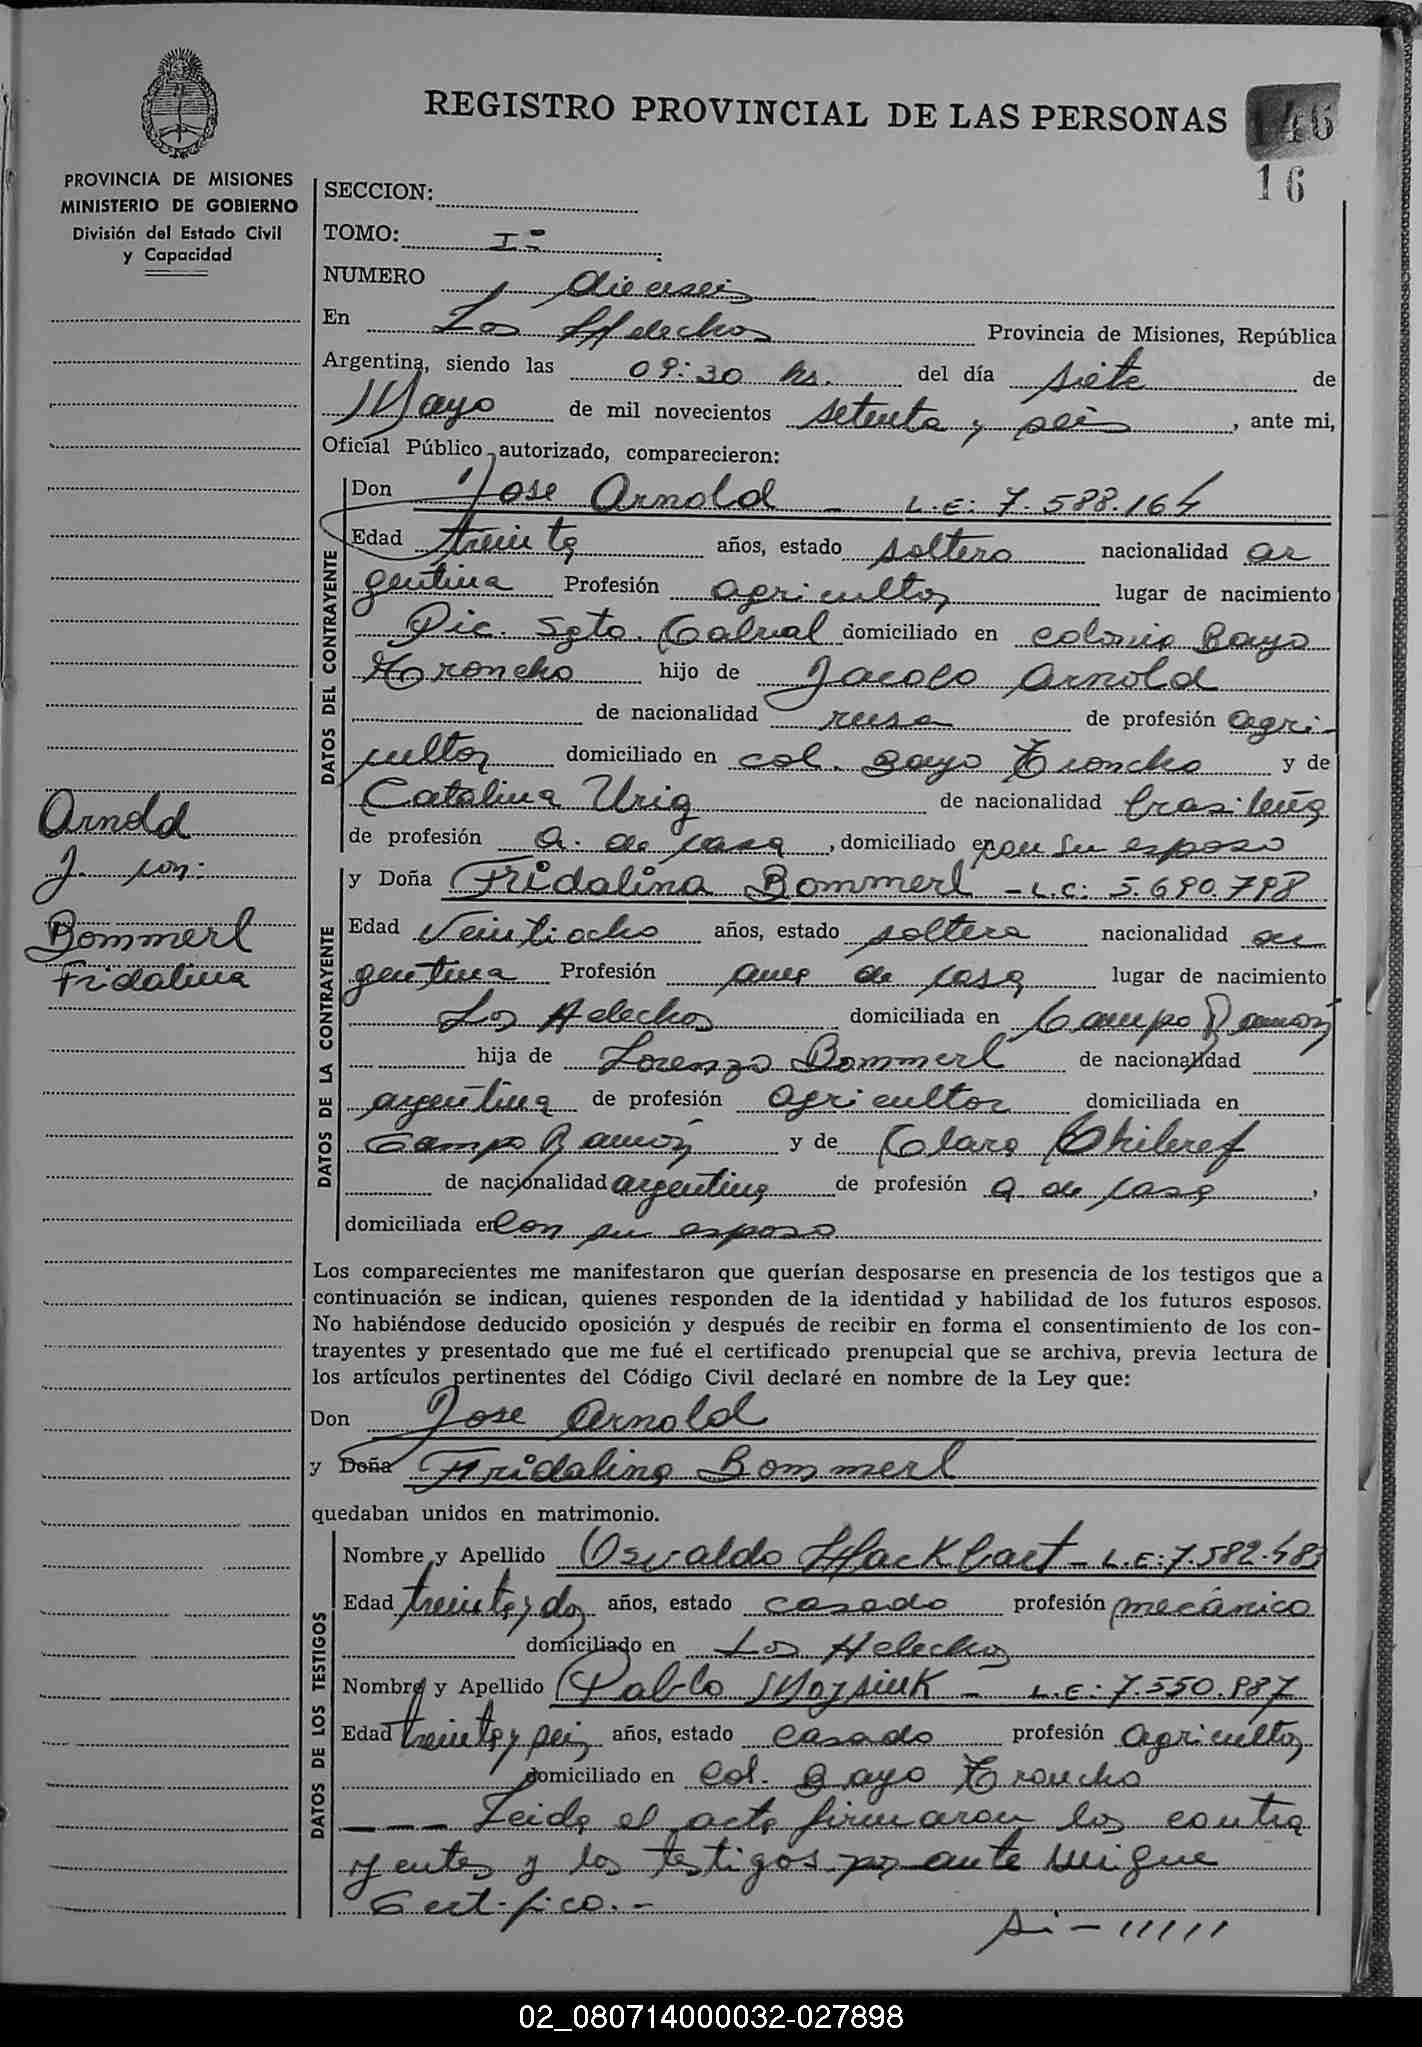 REGISTRO PROVINCIAL DE LAS PERSONAS
146
16
PROVINCIA DE MISIONES
MINISTERIO DE GOBIERNO
División del Estado Civil
y Capacidad
SECCION:
TOMO: I°
NUMERO dieciseis
En Los Helechos Provincia de Misiones, República
Argentina, siendo las 09:30 hs. del día siete de
Mayo de mil novecientos setenta y seis, ante mi,
Oficial Público autorizado, comparecieron:
DATOS DEL CONTRAYENTE
Don Jose Arnold - L.E: 7.588.164
Edad treinta años, estado soltero nacionalidad ar
gentina Profesión agricultor lugar de nacimiento
Pic. Sgto. Cabral domiciliado en colonia Bayo
Troncho hijo de Jacobo Arnold
de nacionalidad rusa de profesión agri-
cultor domiciliado en col. Bayo Troncho y de
Catalina Urig de nacionalidad brasileña
de profesión a. de casa, domiciliado en con su esposo
DATOS DE LA CONTRAYENTE
y Doña Fridalina Bommerl - L.C: 5.690.798
Edad Veintiocho años, estado soltera nacionalidad ar
gentina Profesión ama de casa lugar de nacimiento
Los Helechos domiciliada en Campo Ramón
hija de Lorenzo Bommerl de nacionalidad
argentina de profesión agricultor domiciliada en
Campo Ramón y de Clara
de nacionalidad argentina de profesión a de casa,
domiciliada en Con su esposo
Arnold
J. con:
Bommerl
Fridalina
Los comparecientes me manifestaron que querían desposarse en presencia de los testigos que a
continuación se indican, quienes responden de la identidad y habilidad de los futuros esposos.
No habiéndose deducido oposición y después de recibir en forma el consentimiento de los con-
trayentes y presentado que me fué el certificado prenupcial que se archiva, previa lectura de
los artículos pertinentes del Código Civil declaré en nombre de la Ley que:
Don Jose Arnold
y Doña Fridalina Bommerl
quedaban unidos en matrimonio.
DATOS DE LOS TESTIGOS
Nombre y Apellido Osvaldo Hackbart - L.E: 7.582.483
Edad treinta y dos años, estado casado profesión mecánico
domiciliado en Los Helechos
Nombre y Apellido Pablo - L.E: 7.550.987
Edad treinta y seis años, estado casado profesión agricultor
domiciliado en Col. Bayo Troncho
--- Leida el acta firmaron los contra
yentes y los testigos por ante mi que
Certifico.-
si - 11111
02_080714000032-027898